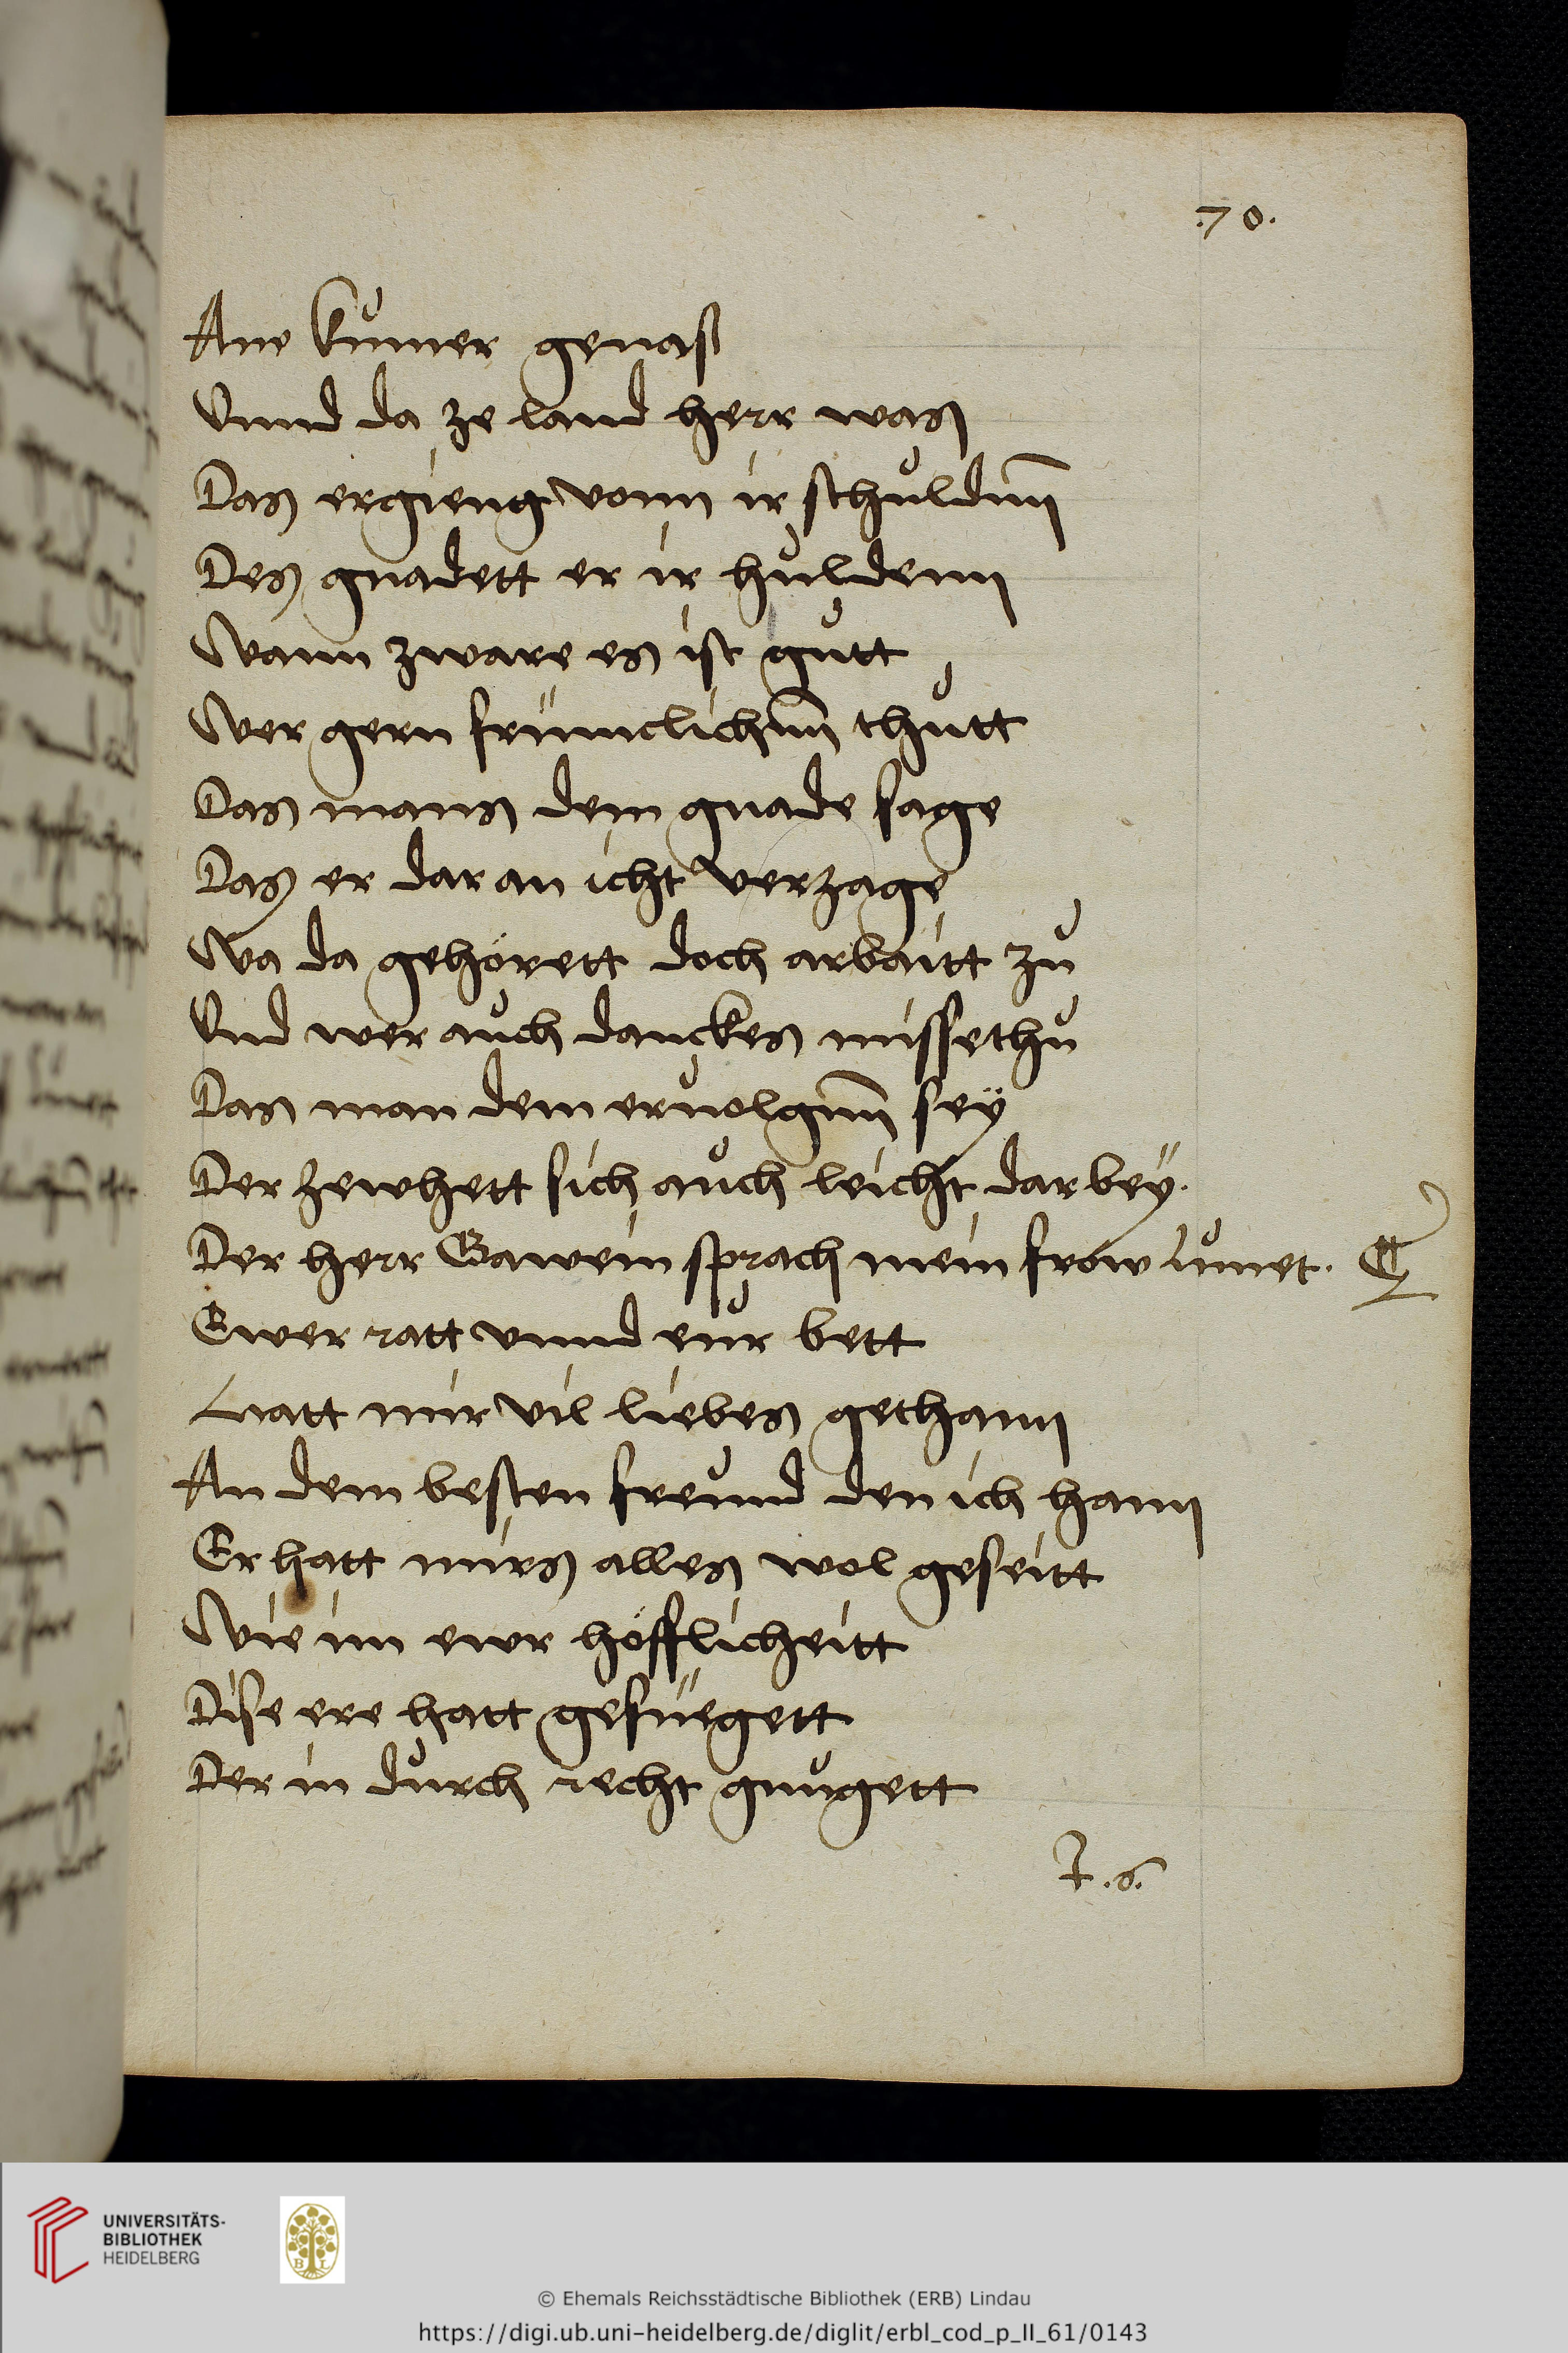 .70.
Ane kumer genaß
Vnnd da ze land herr was
Das ergieng vonn ir schuldnn̄
Des gnadett er ir huldenn
Wann zware es ist gůtt
Wer gern frümclichnn̄ thůtt
Das mans dem gnade sage
Das er dar an icht verzage
Wa da gehörett doch arbaitt zů
Vnd wer aůch danckes missethů
Das man dem eruolgnn̄ seÿ
Der zewhett sich aůch leicht dar beÿ.
Der herr Gawein sprach mein frow Lůnet.
Ewer ratt vnnd eůr bett
Hatt mir vil liebes gethann
An dem besten freůnd den ich hann
Er hatt mirs alles wol geseitt
Wie im ewr höfflicheitt
Dise ere hatt gefüegett
Der in důrch recht gnůgett
J.6.
UNIVERSITÄTS-
BIBLIOTHEK
HEIDELBERG
B L
© Ehemals Reichsstädtische Bibliothek (ERB) Lindau
https://digi.ub.uni-heidelberg.de/diglit/erbl_cod_p_II_61/0143